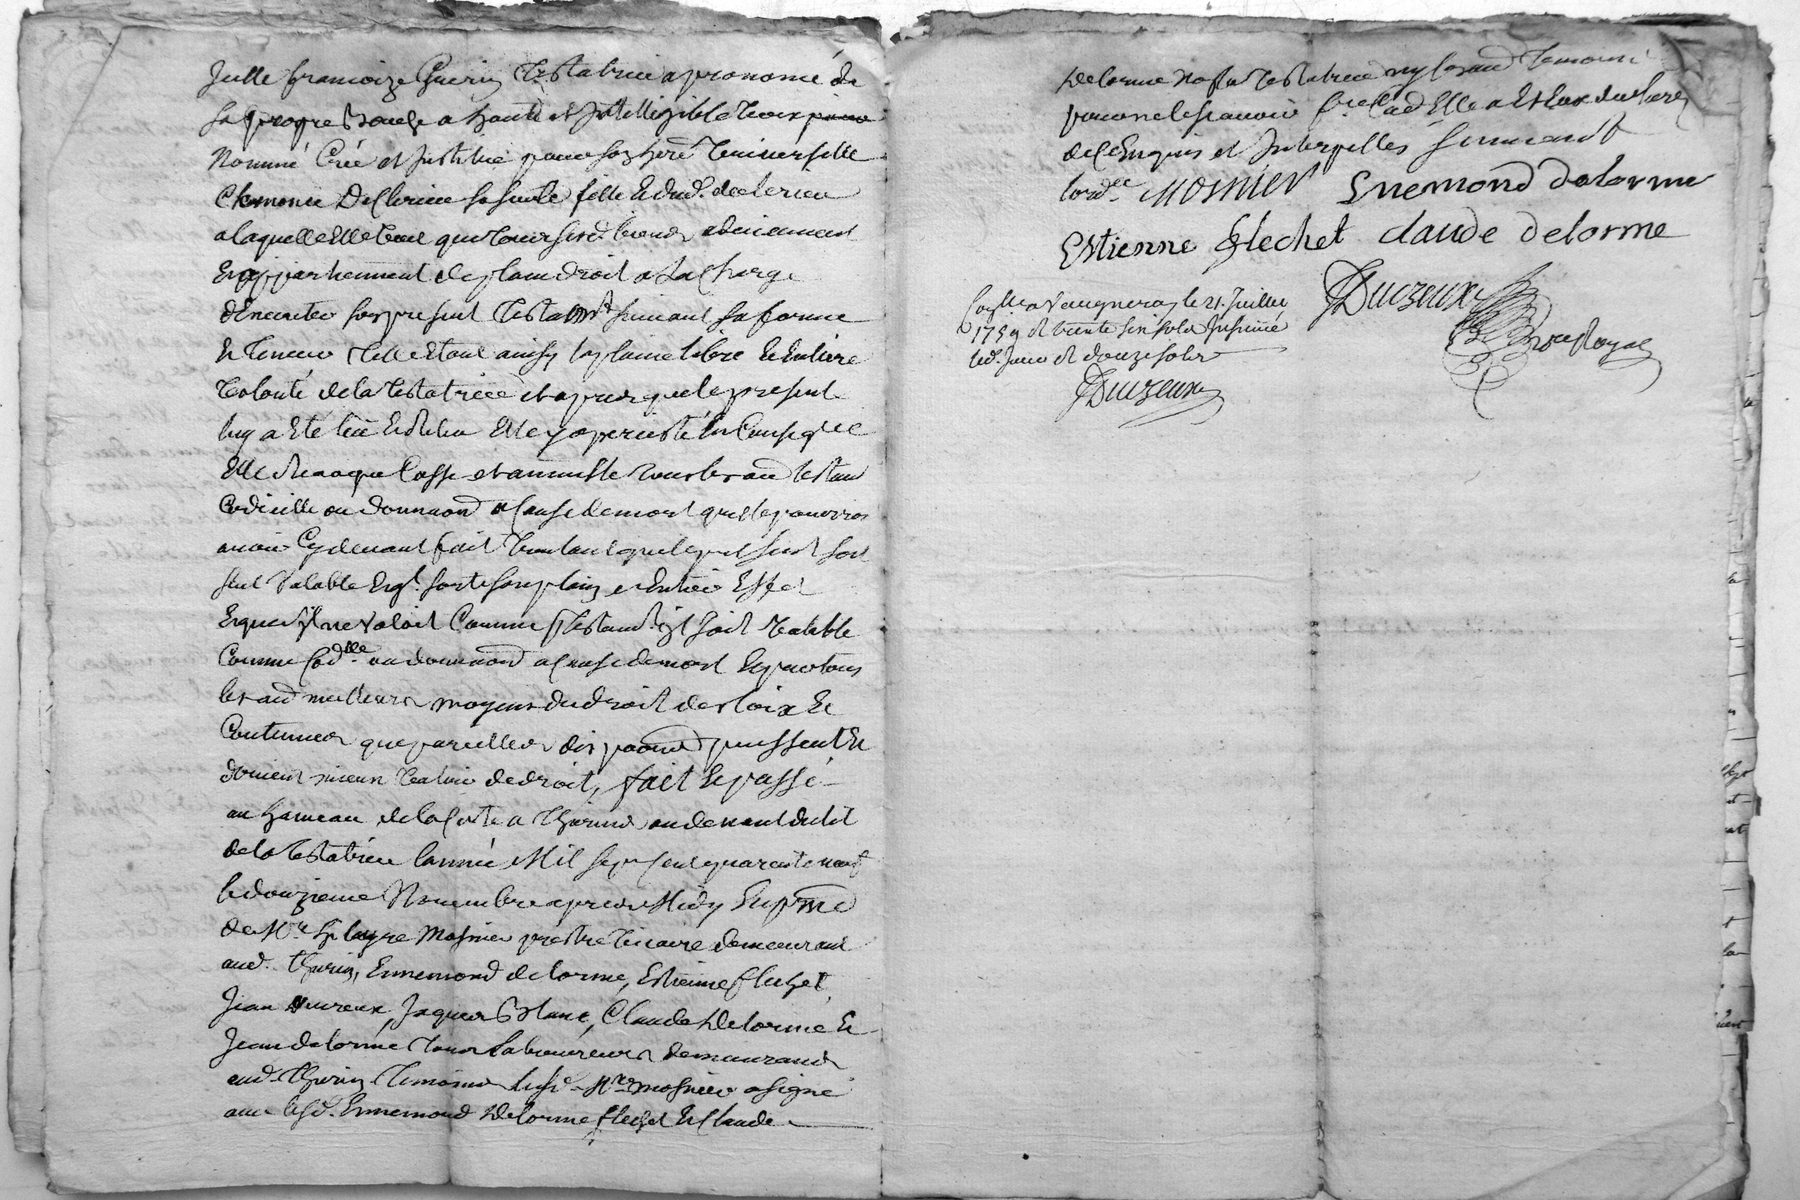 Jcelle francoize Guerin Testatrice a prononcé de
sa propre Bouche a haute et Intelligible Voix
Nommé Créé et Institué pour son here Universelle
Clemence Declerieu sa seule fille dud. declerieu
a laquelle Elle Veut que tous sesd. biens adviennent
Et appartiennent de plain droit a La Charge
dExecuter son present Testamt suivant sa forme
Et Teneur Telle Etant ainsy la plaine libre Et Entiere
Volonté de la Testatrice et apres que le present
luy a Eté leü Et Relu Elle y a persisté En Conseq
Elle Revoque Casse et annulle tous les au Testam
Codicille ou donnaon a Cause de mort quelle pourroit
avoir Cy devant fait Voulant que le pnt seul soit
seul Valable Et q. sorte son plain et Entier Effet
Et que s'il ne Valoit Comme Testamt. qil soit Valable
Comme Cod.lle ou donnaon a Cause de mort Et par tous
les au meilleurs moyens du droit des loix Et
Coutumes que pareilles dispoons puissent Et
doivent mieux Valoir de droit, fait Et passé
au hameau de la Coste a Thurins au devant du lit
de la Testatrice lannée Mil sept cent quarente neuf
le douzieme Novembre apres Midy En pnce
de Mr. hilayre Mosnier prestre Vicaire demeurant
aud. thurin, Ennemond delorme, Estienne flechet,
Jean Jaques Blanc, Claude Delorme Et
Jean delorme Tous Laboureurs demeurants
aud. Thurin Temoins led. Mre mosnier a signé
avec lesd. Ennemond Delorme flechet Et Claude
Delorme non la Testatrice ny les au Temoins
pour ne le scavoir fre. Elle a Et Eux declaré
de Enquis et Interpellés suivant
lord.ce Mosnier Enemond delorme
Estienne flechet claude delorme
a Vaugneray le 21. Juillet
17 et trente six sols Insinué
led. Jour et douze sols
Duvzeux